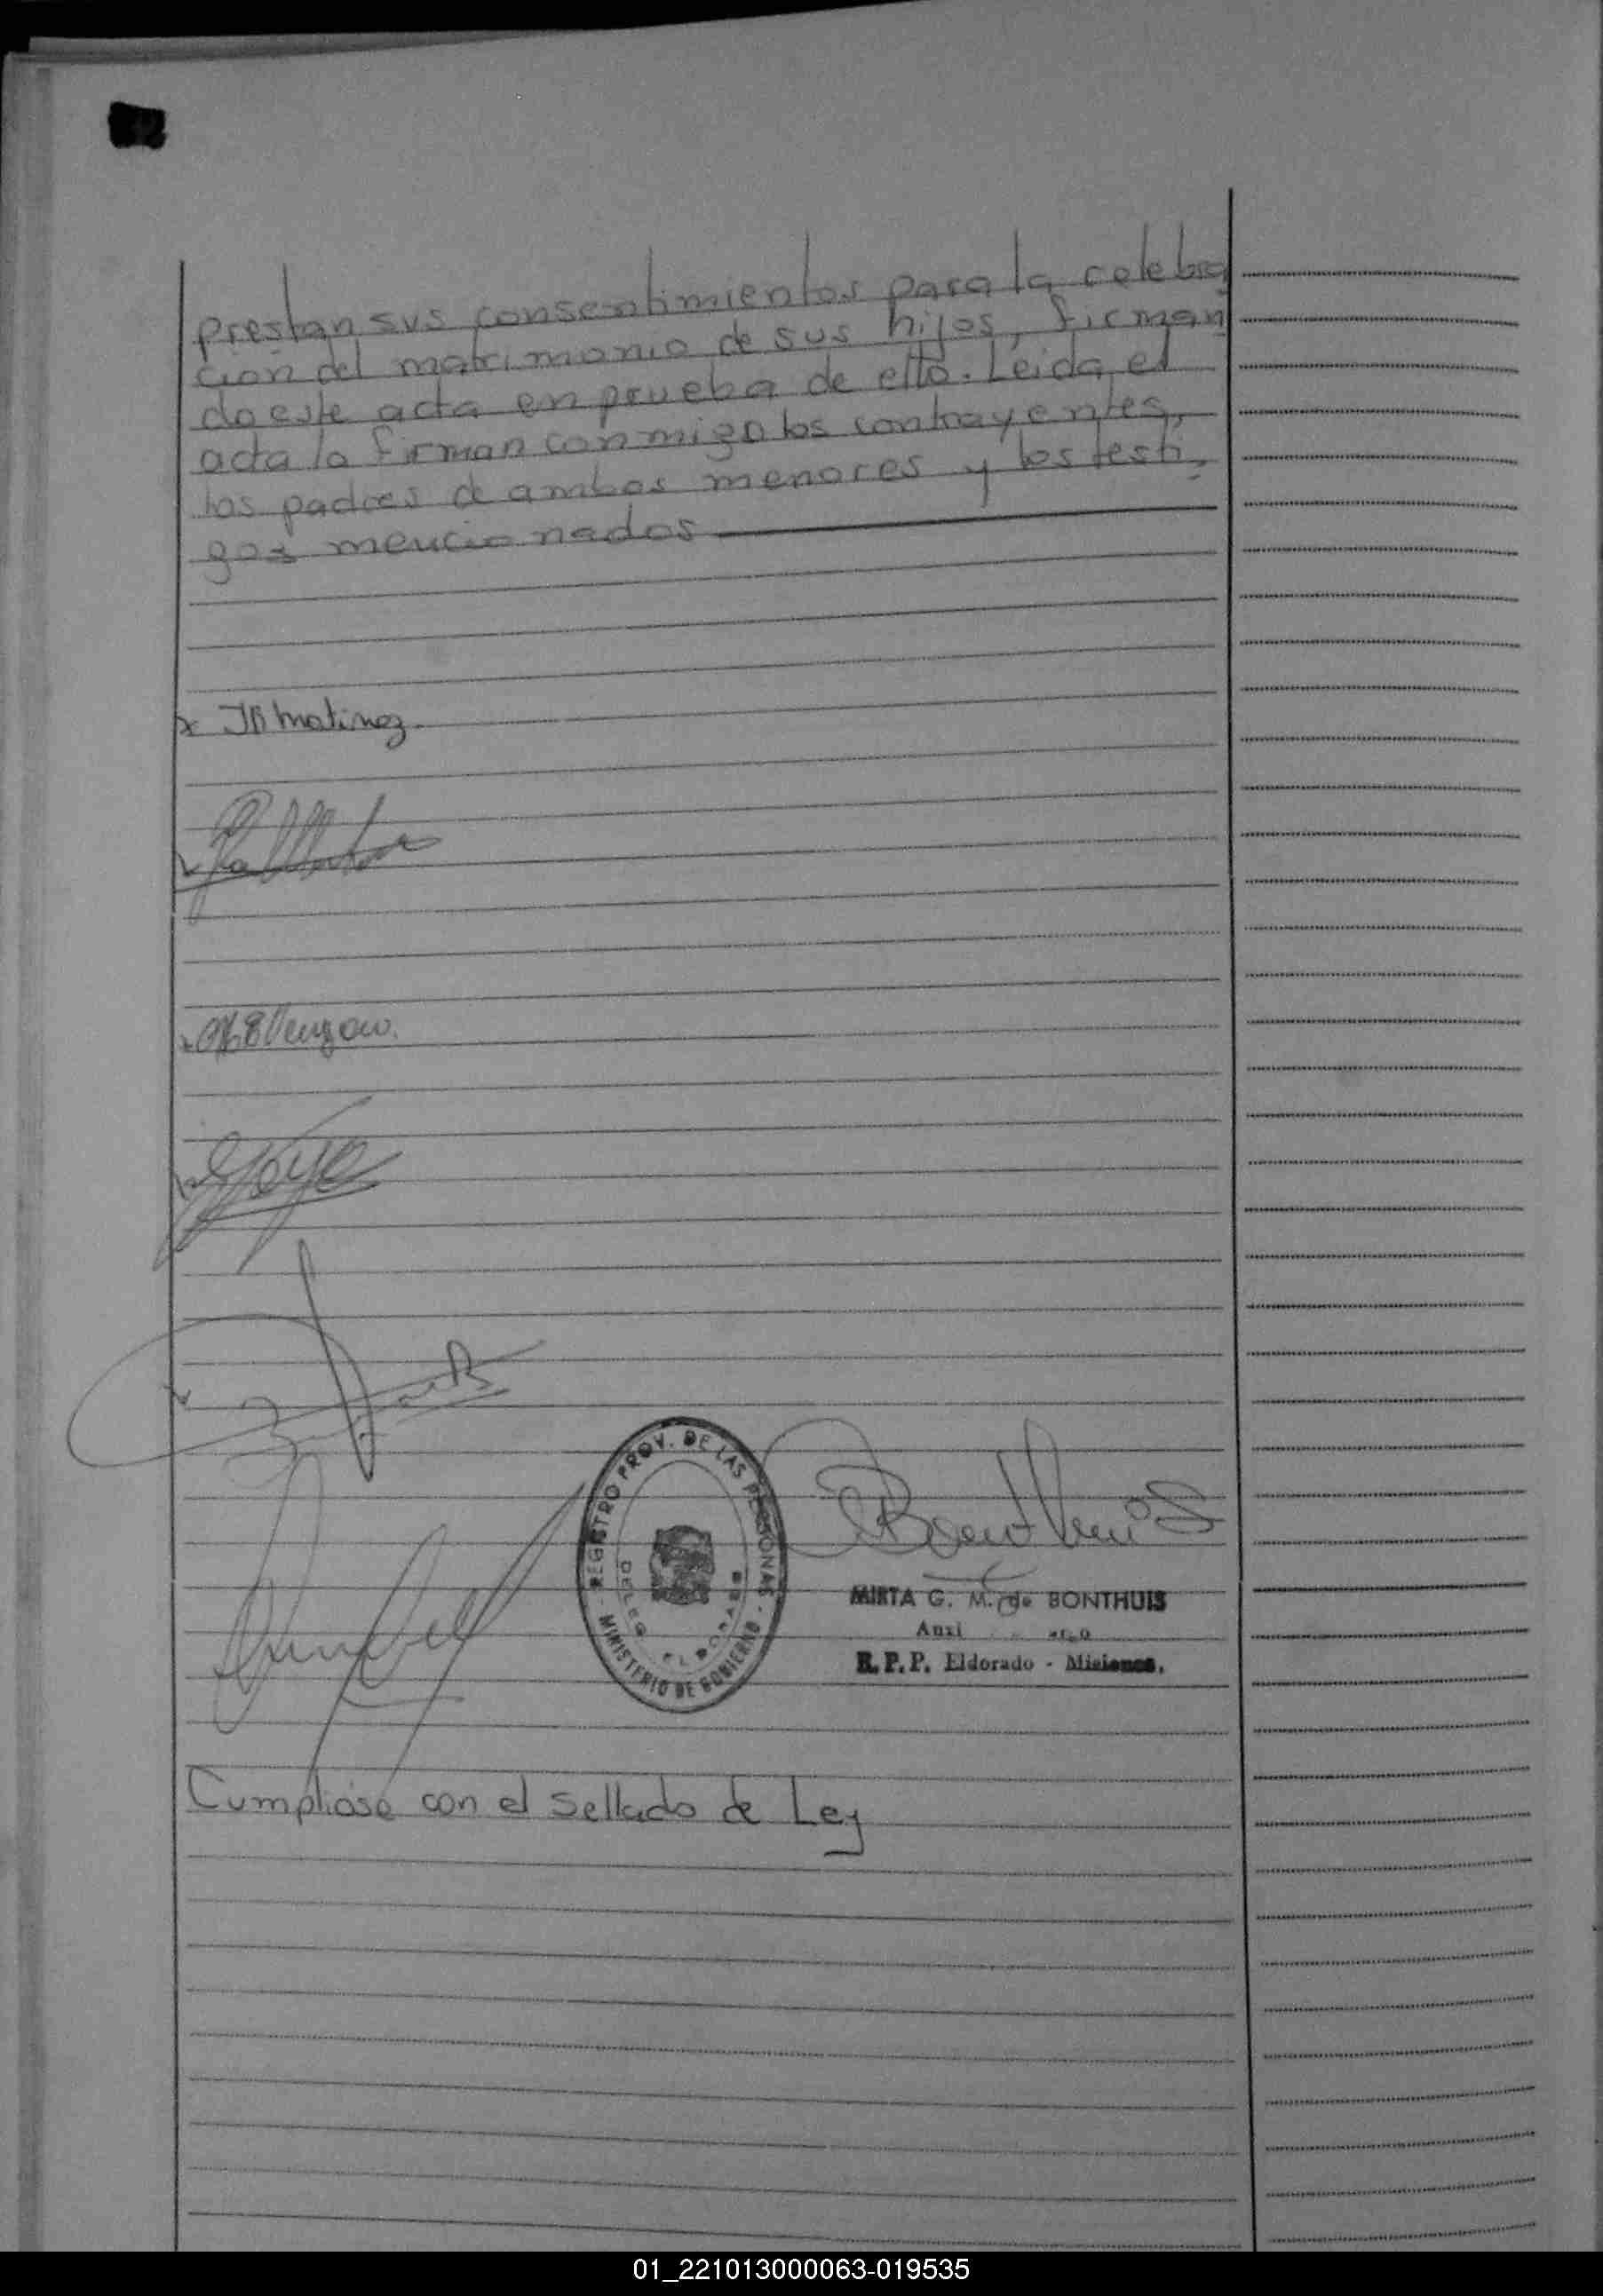 prestan sus consentimientos para la celebra
cion del matrimonio de sus hijos, firman
do este acta en prueba de ello. Leida el
acta la firman conmigo los contrayentes,
los padres de ambos menores y los testi,
gos mencionados
x JB Matinez.
REGISTRO PROV. DE LAS PERSONAS - MINISTERIO DE GOBIERNO -
Bonthuis
MIRTA G. M. de BONTHUIS
Auxi
R. P. P. Eldorado - Misiones.
Cumpliose con el Sellado de Ley
01_221013000063-019535